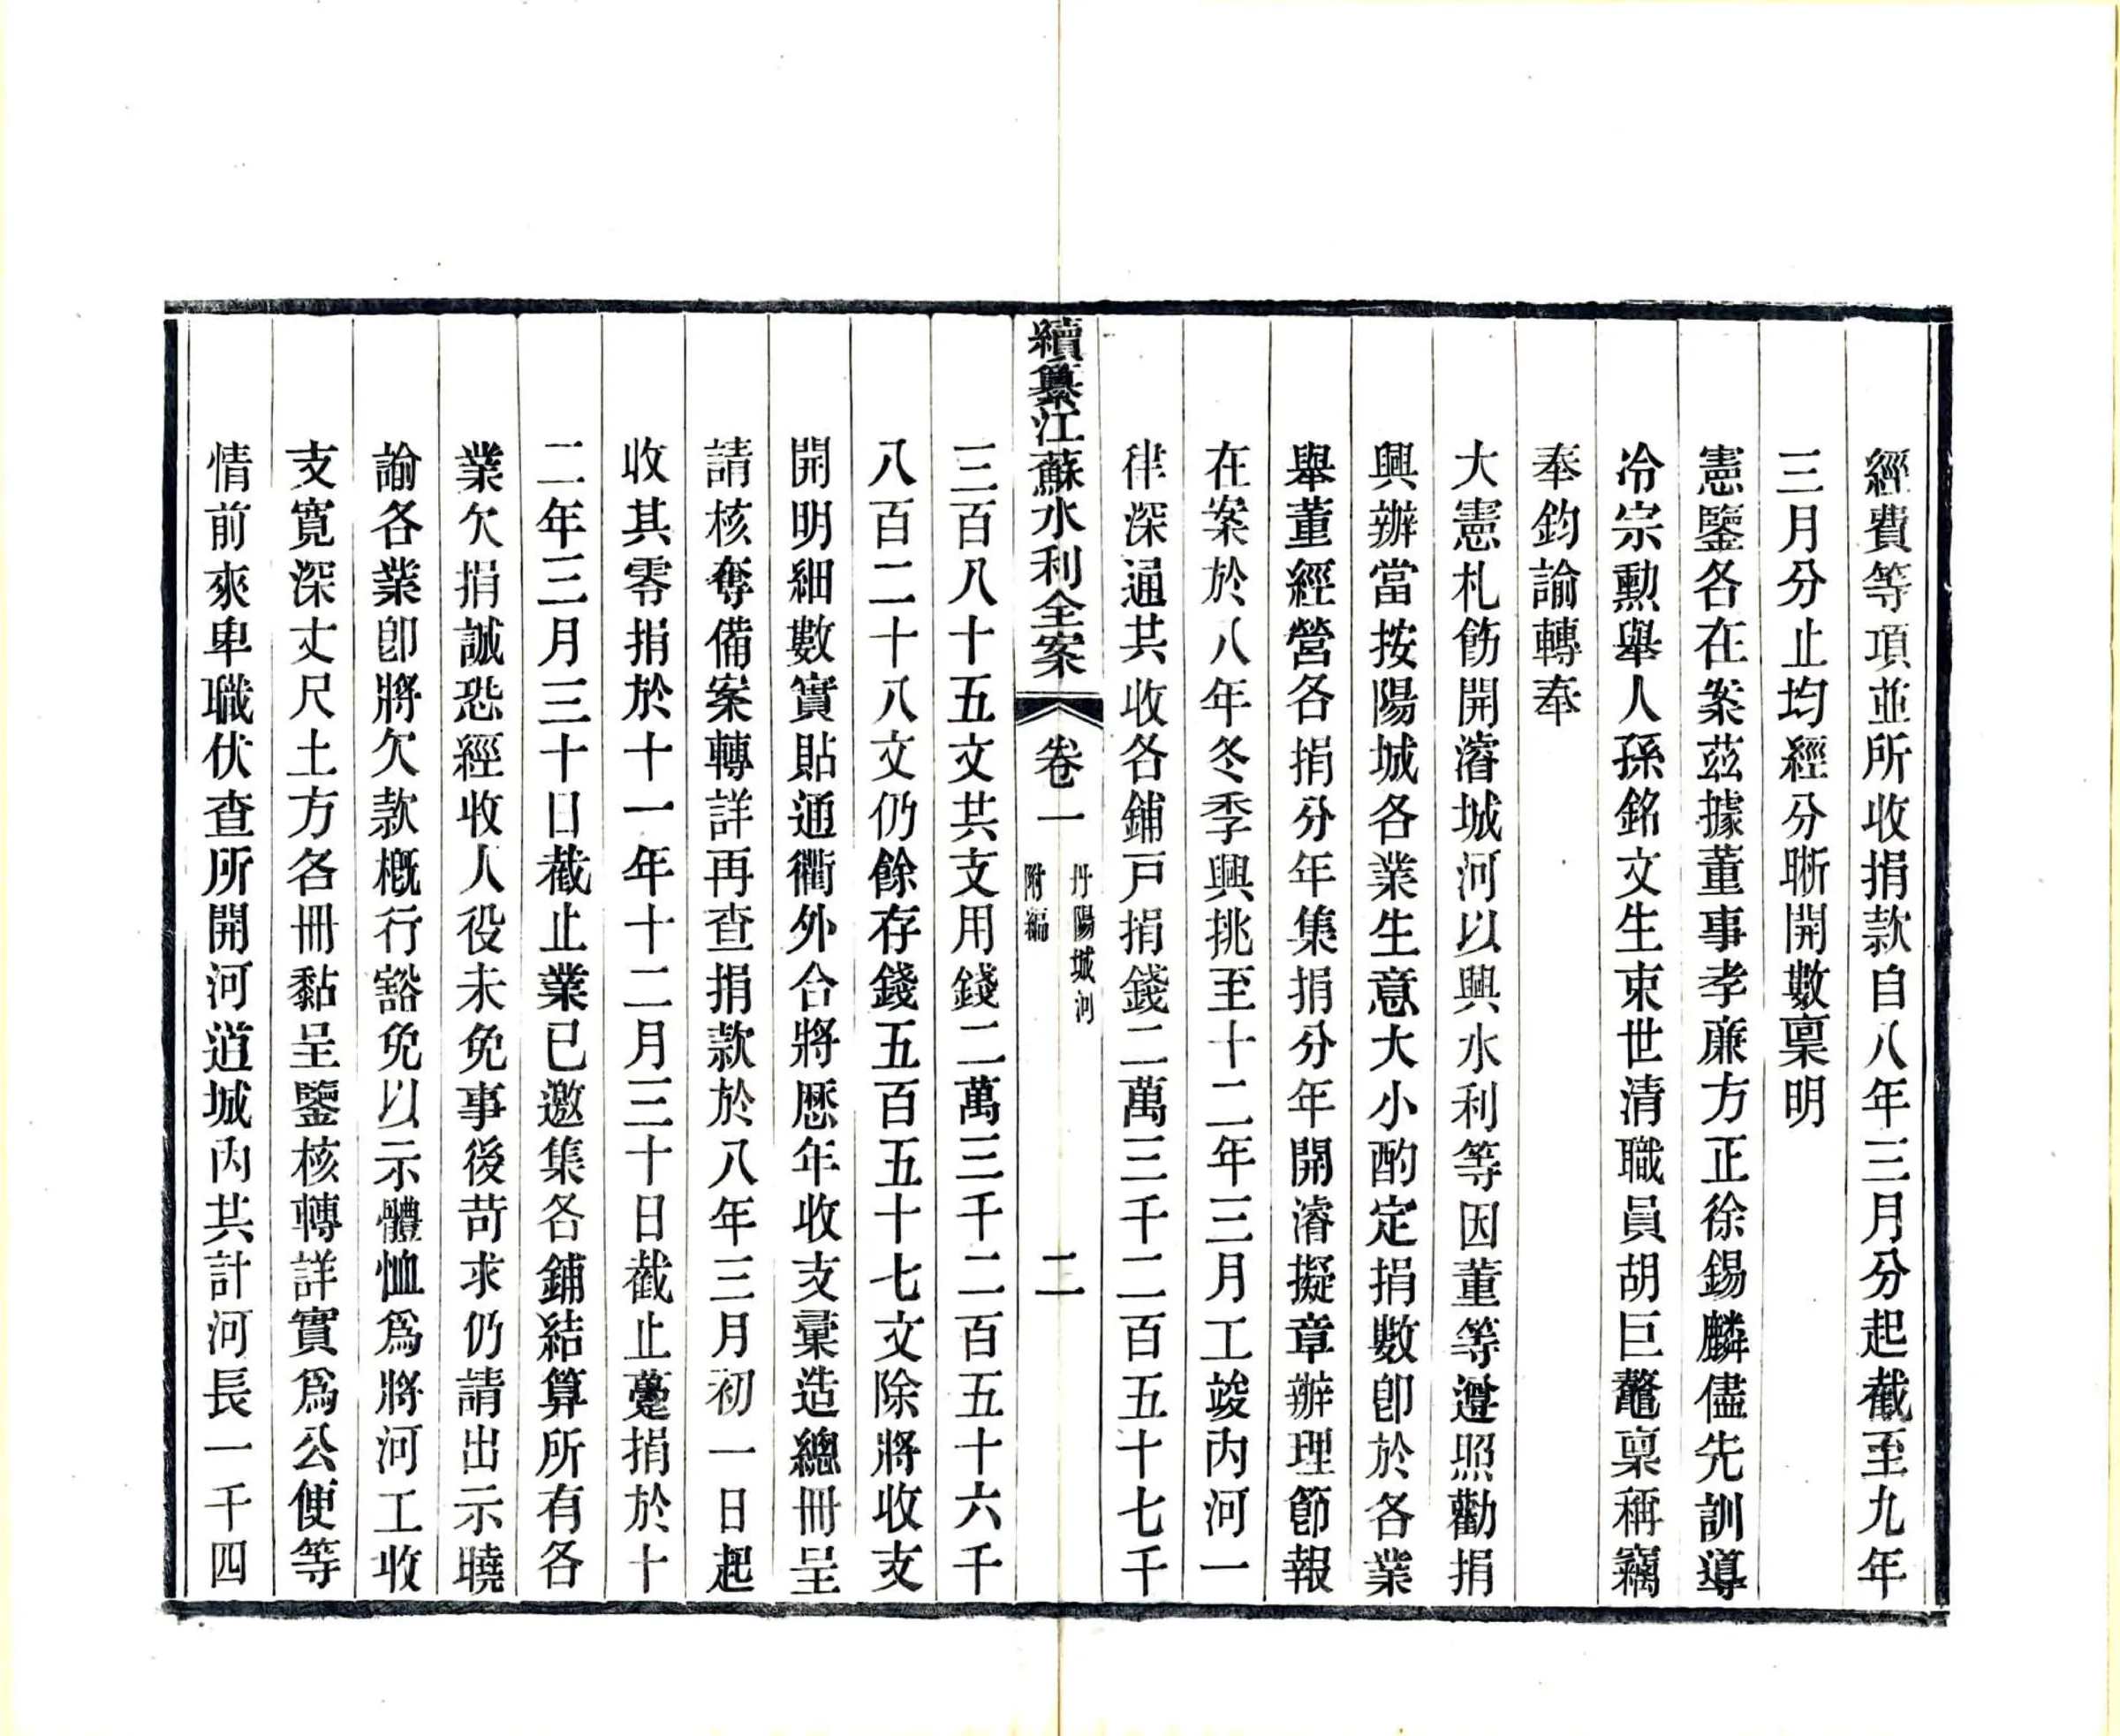 經費等項並所收捐款自八年三月分起截至九年
三月分止均經分晰開數稟明
憲鑒各在案茲據董事孝廉方正徐錫麟儘先訓導
冷宗勳舉人孫銘文生束世清職員胡巨鼇稟稱竊
奉鈞諭轉奉
大憲札飭開濬城河以興水利等因董等遵照勸捐
興辦當按陽城各業生意大小酌定捐數卽於各業
舉董經營各捐分年集捐分年開濬擬章辦理節報
在案於八年冬季興挑至十二年三月工竣內河一
律深通共收各鋪戶捐錢二萬三千二百五十七千
續纂江蘇水利全案 卷一 丹陽城河 附編 二
三百八十五文共支用錢二萬三千二百五十六千
八百二十八文仍餘存錢五百五十七文除將收支
開明細數實貼通衢外合將歷年收支彙造總冊呈
請核奪備案轉詳再查捐款於八年三月初一日起
收其零捐於十一年十二月三十日截止躉捐於十
二年三月三十日截止業已邀集各鋪結算所有各
業欠捐誠恐經收人役未免事後苛求仍請出示曉
諭各業卽將欠款概行豁免以示體恤爲將河工收
支寬深丈尺土方各冊黏呈鑒核轉詳實爲公便等
情前來卑職伏查所開河道城內共計河長一千四